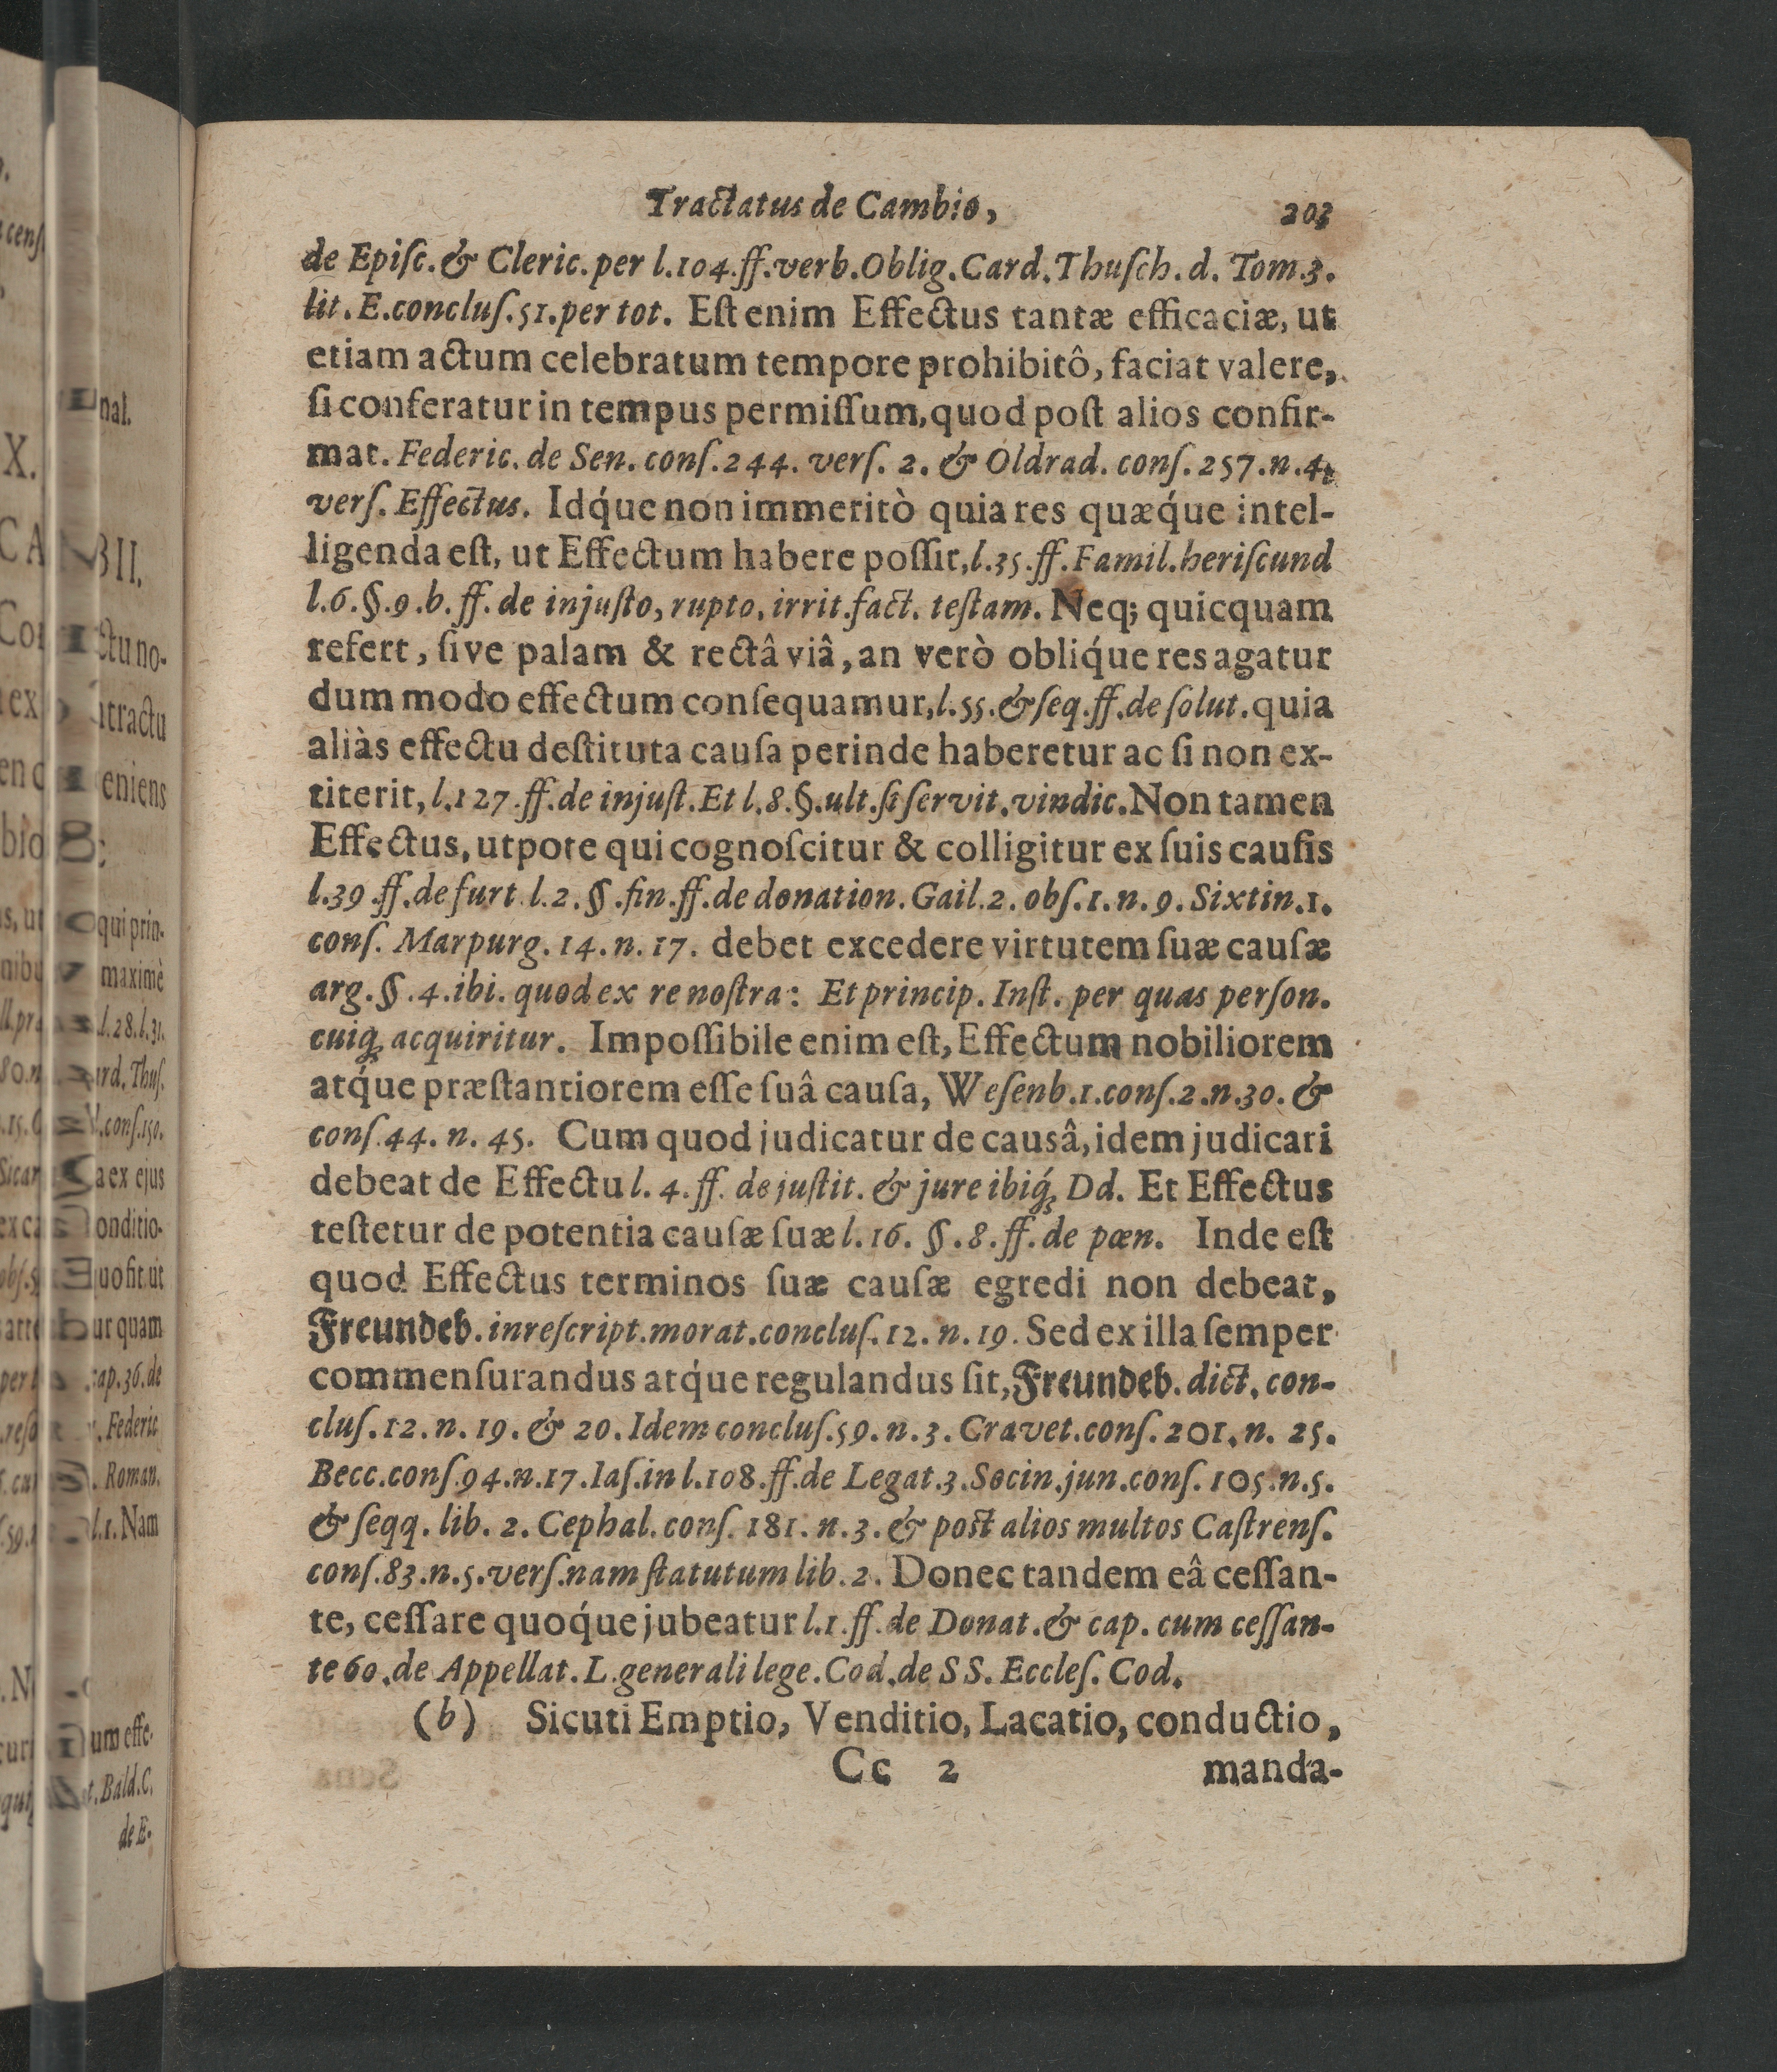 Tractatus de Cambio, 203
de Epiſc. & Cleric. per l.104. ff. verb. Oblig. Card. Thuſch. d. Tom.3.
lit. E. concluſ.51. per tot. Eſt enim Effectus tantæ efficaciæ, ut
etiam actum celebratum tempore prohibitô, faciat valere,
ſi conferatur in tempus permiſſum, quod poſt alios confir-
mat. Federic. de Sen. conſ.244. verſ. 2. & Oldrad. conſ.257.n.4.
verſ. Effectus. Idq́ue non immeritò quia res quæq́ue intel-
ligenda eſt, ut Effectum habere poſſit, l.35. ff. Famil. heriſcund
l.6.§.9.b. ff. de injuſto, rupto, irrit. fact. teſtam. Neq; quicquam
refert, ſive palam & rectâ viâ, an verò obliq́ue res agatur
dum modo effectum conſequamur, l.55. & ſeq. ff. de ſolut. quia
aliàs effectu deſtituta cauſa perinde haberetur ac ſi non ex-
titerit, l.127. ff. de injuſt. Et l.8.§. ult. ſi ſervit. vindic. Non tamen
Effectus, utpote qui cognoſcitur & colligitur ex ſuis cauſis
l.39 ff. de furt l.2.§. fin. ff. de donation. Gail.2. obſ.1.n.9. Sixtin.1.
conſ. Marpurg. 14. n. 17. debet excedere virtutem ſuæ cauſæ
arg. §.4. ibi. quod ex re noſtra: Et princip. Inſt. per quas perſon.
cuiq́ꝫ acquiritur. Impoſſibile enim eſt, Effectum nobiliorem
atq́ue præſtantiorem eſſe ſuâ cauſa, Weſenb.1. conſ.2.n.30. &
conſ.44. n. 45. Cum quod judicatur de cauſâ, idem judicari
debeat de Effectu l. 4. ff. de juſtit. & jure ibiq́ꝫ Dd. Et Effectus
teſtetur de potentia cauſæ ſuæ l.16. §.8. ff. de pœn. Inde eſt
quod Effectus terminos ſuæ cauſæ egredi non debeat,
Freundeb. in reſcript. morat. concluſ.12. n. 19. Sed ex illa ſemper
commenſurandus atq́ue regulandus ſit, Freundeb. dict. con-
cluſ.12. n. 19. & 20. Idem concluſ.59. n. 3. Cravet. conſ. 201. n. 25.
Becc. conſ.94.n.17. Iaſ. in l.108. ff. de Legat.3. Socin. jun. conſ. 105.n.5.
& ſeqq. lib. 2. Cephal. conſ. 181. n. 3. & poſt alios multos Caſtrenſ.
conſ.83.n.5. verſ. nam ſtatutum lib. 2. Donec tandem eâ ceſſan-
te, ceſſare quoq́ue jubeatur l.1. ff. de Donat. & cap. cum ceſſan-
te 60. de Appellat. L. generali lege. Cod. de SS. Eccleſ. Cod.
(b) Sicuti Emptio, Venditio, Lacatio, conductio,
Cc 2 manda-